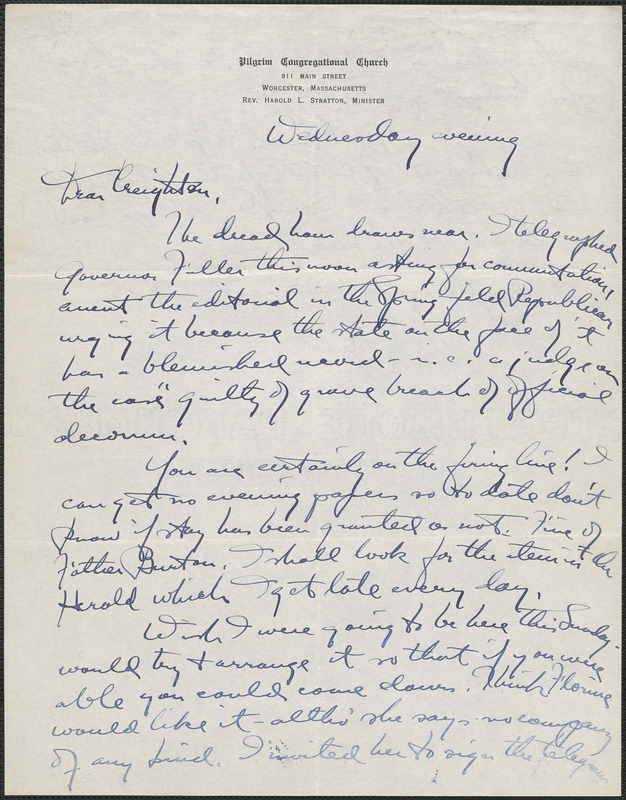 Pilgrim Congregational Church
911 MAIN STREET
WORCESTER, MASSACHUSETTS
REV. HAROLD L. STRATTON, MINISTER
Wednesday evening
Dear Creighton,
The dread hour draws near. I telegraphed
Governor Fuller this noon asking for commutation,
anent the editorial in the Springfield Republican
urging it because the state on the face of it
has a blemished record - i.e. a judge on
the case "guilty of grave breach of official
decorum.
You are certainly on the firing line! I
can get no evening papers so to date don't
know if stay has been granted or not. Fine of
Father Burton. I shall look for the item in the
Herald which I get late every day.
Wish I were going to be here this Sunday -
would try to arrange it so that if you were
able you could come down. Think Florine
would like it - altho' she says no company
of any kind. I invited her to sign the telegram